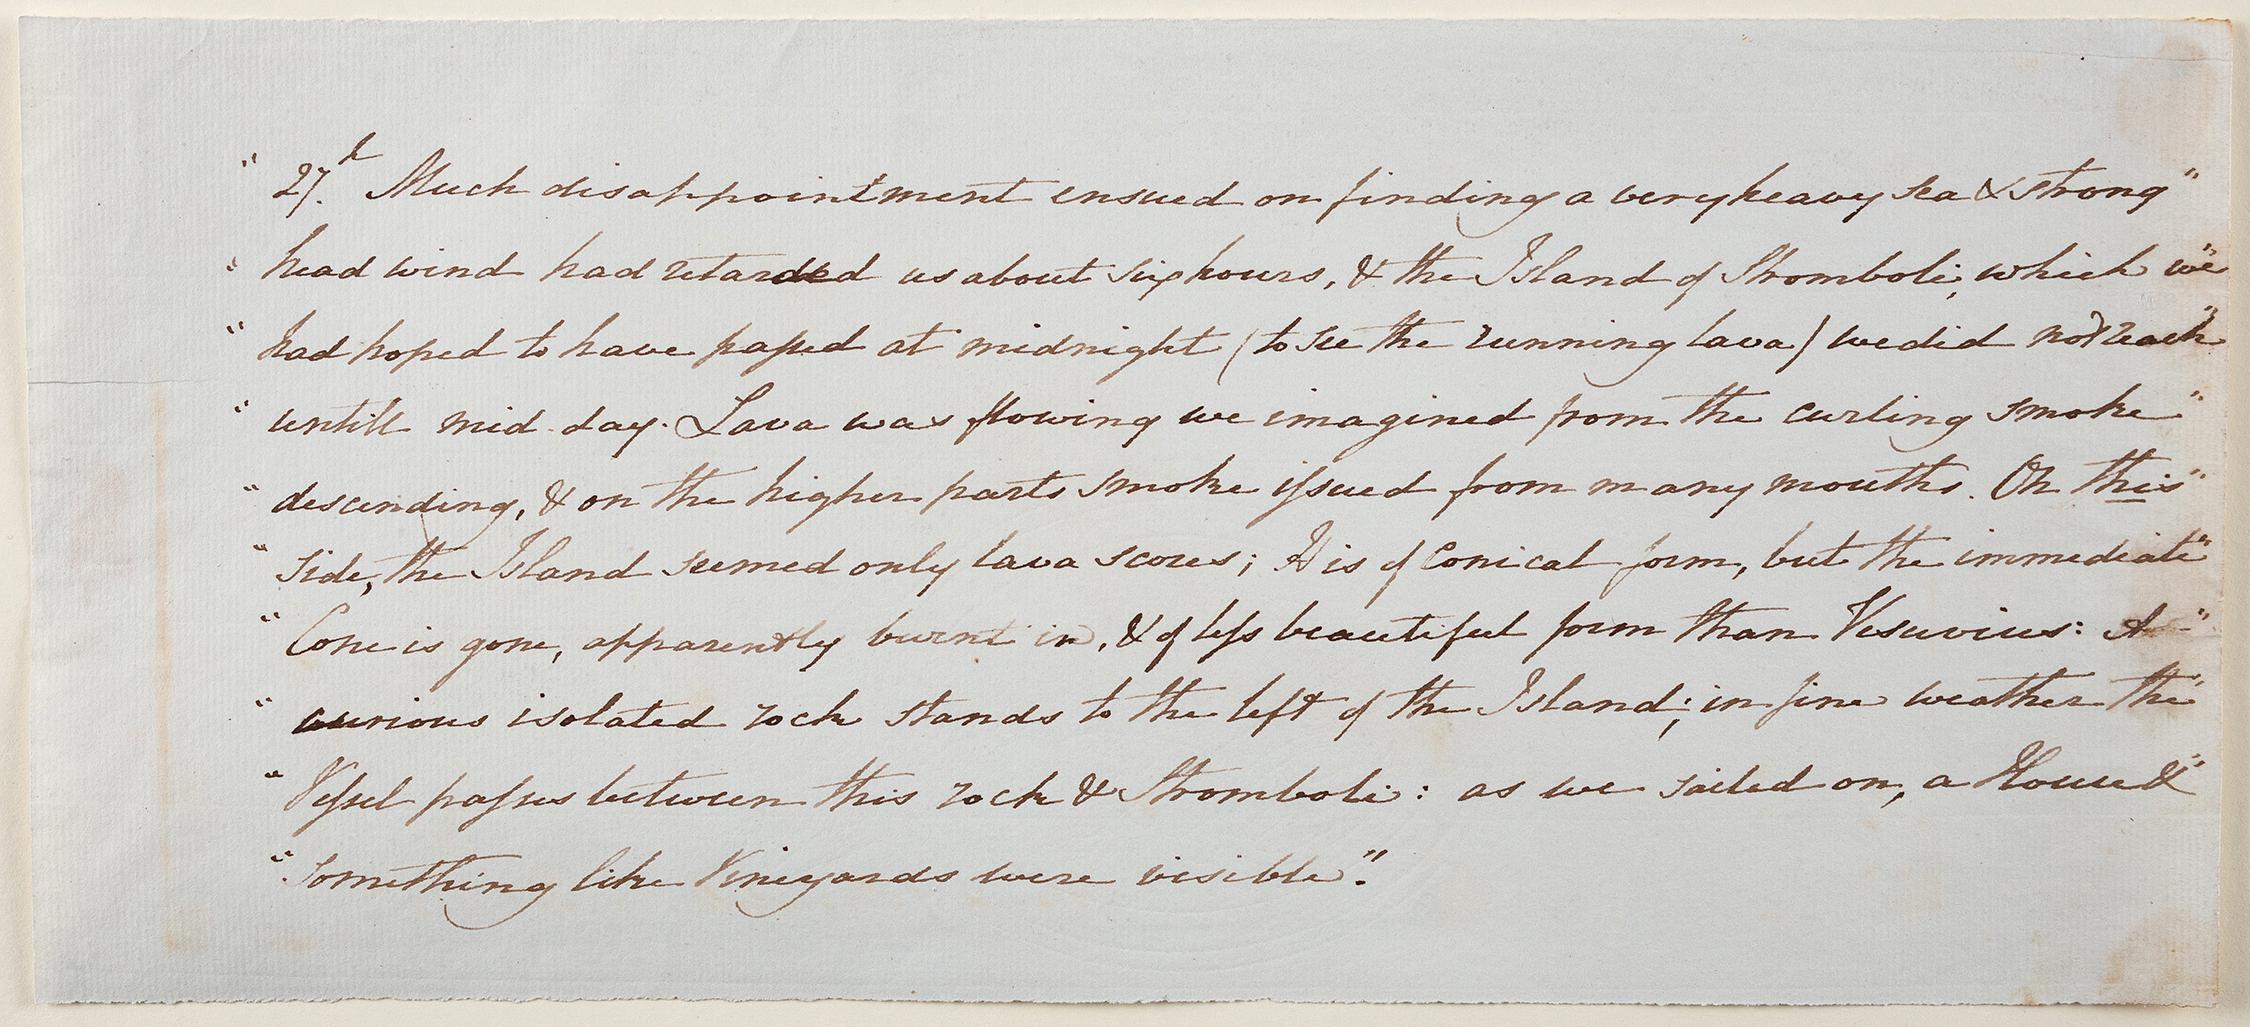 " 27.th Much disappointment ensued on finding a very heavy sea & strong "
" head wind had retarded us about six hours, & the Island of Stromboli, which we "
" had hoped to have passed at midnight (to see the running lava) we did not reach "
" untill mid-day. Lava was flowing we imagined from the curling smoke "
" descending, & on the higher parts smoke issued from many mouths. On this "
" side, the Island seemed only lava scores; It is of Conical form, but the immediate "
" Cone is gone, apparently burnt in, & of less beautiful form than Vesuvius: A "
" curious isolated rock stands to the left of the Island; in fine weather the "
" Vessel passes between this rock & Stromboli: as we sailed on, a House & "
" Something like Vineyards were visible."